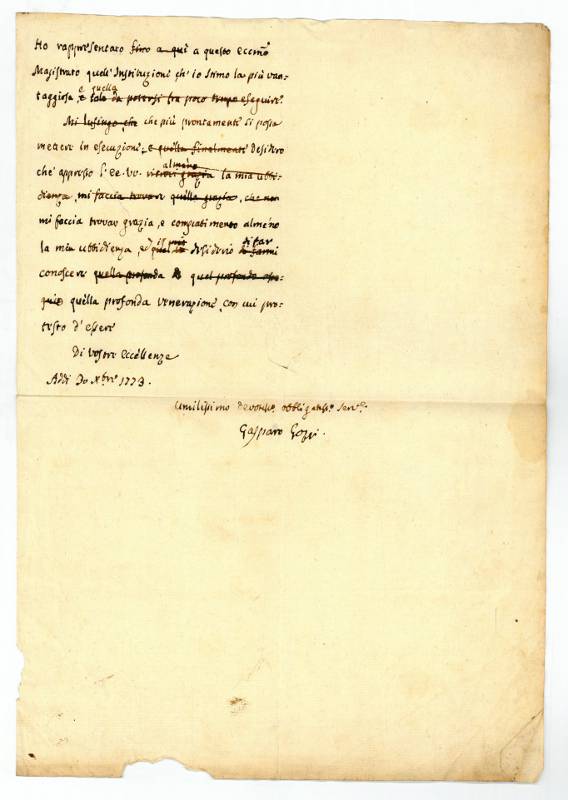 Ho rappresentato fino a quì a questo eccmo
Magistrato quell' Instituzione ch' io stimo la più van-
e quella
taggiosa, e tale da potersi fra poco tempo eseguire.
Mi lusingo, che che più prontamente si possa
mettere in esecuzione, e quella finalmente Desidero
almeno
che appresso l' EE. VV. grazia la mia ubbi-
dienza, mi faccia trovare quella grazia, che non
mi faccia trovar grazia, e compatimento alméno
la mia ubbidienza, ed il mio desiderio di far
conoscere quella profonda quel profondo osse-
quio quella profonda venerazione, con cui pro-
testo d' essere
Di Vostre Eccellenze
Addì 30 Xbre 1773.
Umilissimo devotiss.o obbligatiss.o Serv.e
Gasparo Gozzi.